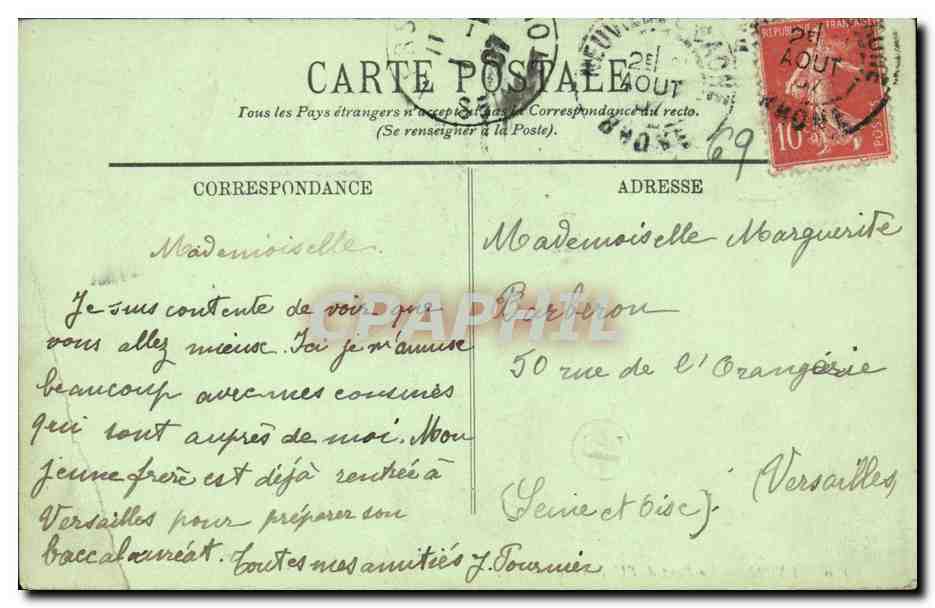 CARTE POSTALE
Tous les Pays étrangers n'acceptent pas la Correspondance au recto.
(Se renseigner à la Poste).
CORRESPONDANCE
Mademoiselle.
Je suis contente de voir que
vous allez mieux. Ici je m'amuse
beaucoup avec mes cousines
qui sont auprès de moi. Mon
jeune frère est déjà rentrée à
Versailles pour préparer son
baccalauréat. Toutes mes amitiés J. Fournier
ADRESSE
Mademoiselle Marguerite
Barberon
50 rue de l'Orangerie
(Versailles)
(Seine et Oise).
69
REPUBLIQUE FRANÇAISE
10
POSTES
2E
AOUT
07
RHONE
2E
AOUT
RHONE
CPAPHIL